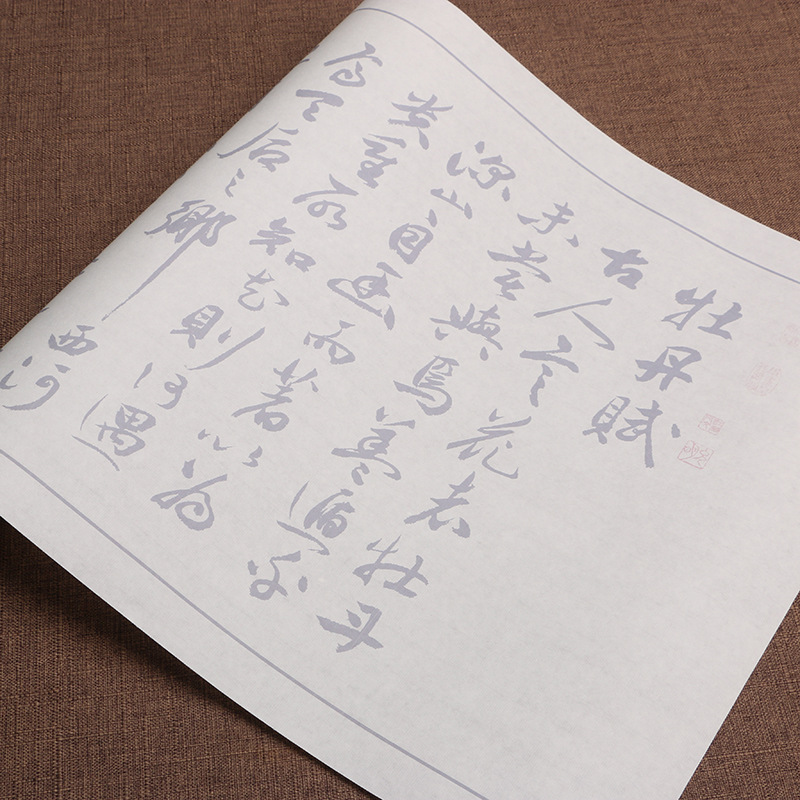 牡丹賦
古人言花者牡丹
未嘗與焉蓋遁乎
深山自幽而著以为
貴重所知花則何遇
焉天后之鄉西河